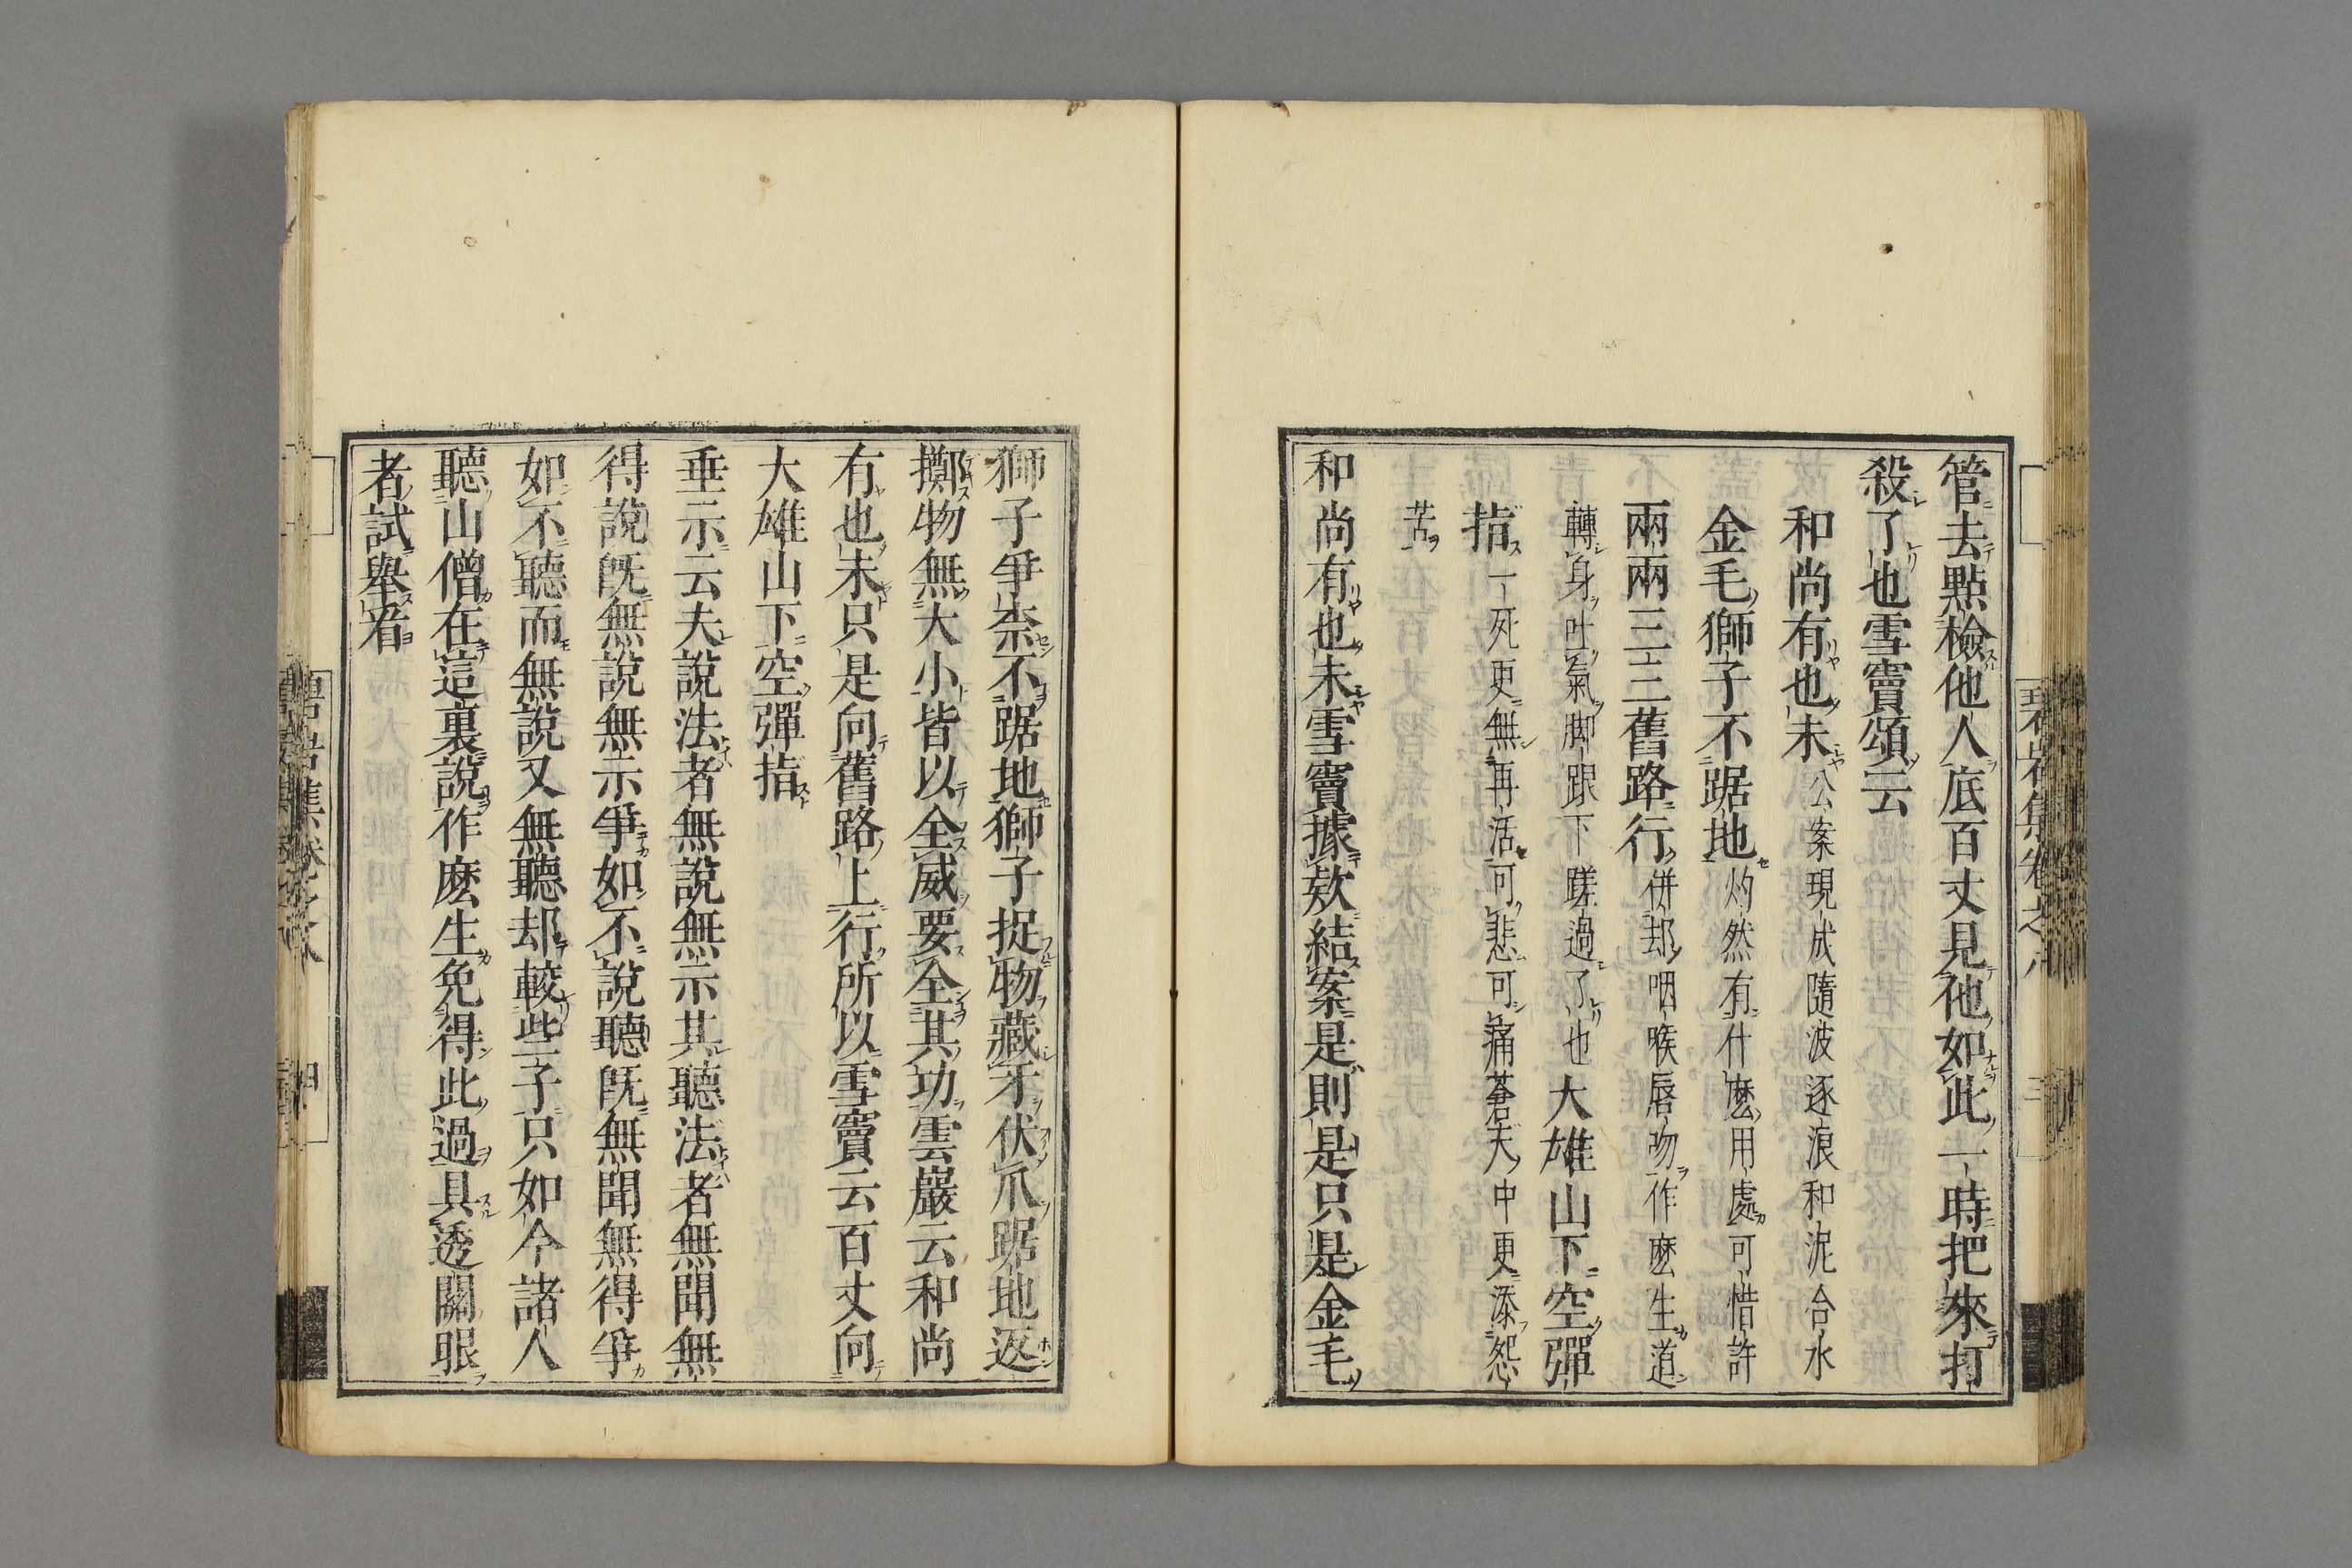 管去點檢他人底百丈見他如此一時把來打
殺了也雪竇頌云
和尚有也未公案現成隨波逐浪和泥合水
金毛獅子不踞地灼然有什麼用處可惜許
兩兩三三舊路行併却咽喉唇吻作麽生道
轉身吐氣脚跟下蹉過了也大雄山下空彈
指一死更無再活可悲可痛蒼天中更添怨
苦
和尚有也未雪竇據欵結案是則是只是金毛
獅子爭柰不踞地獅子捉物藏牙伏爪踞地返
擲物無大小皆以全威要全其功雲巖云和尚
有也未只是向舊路上行所以雪竇云百丈向
大雄山下空彈指
垂示云夫說法者無說無示其聽法者無聞無
得說旣無說無示爭如不說聽旣無聞無得爭
如不聽而無說又無聽却較些子只如今諸人
聽山僧在這裏說作麽生免得此過具透關眼
者試舉看